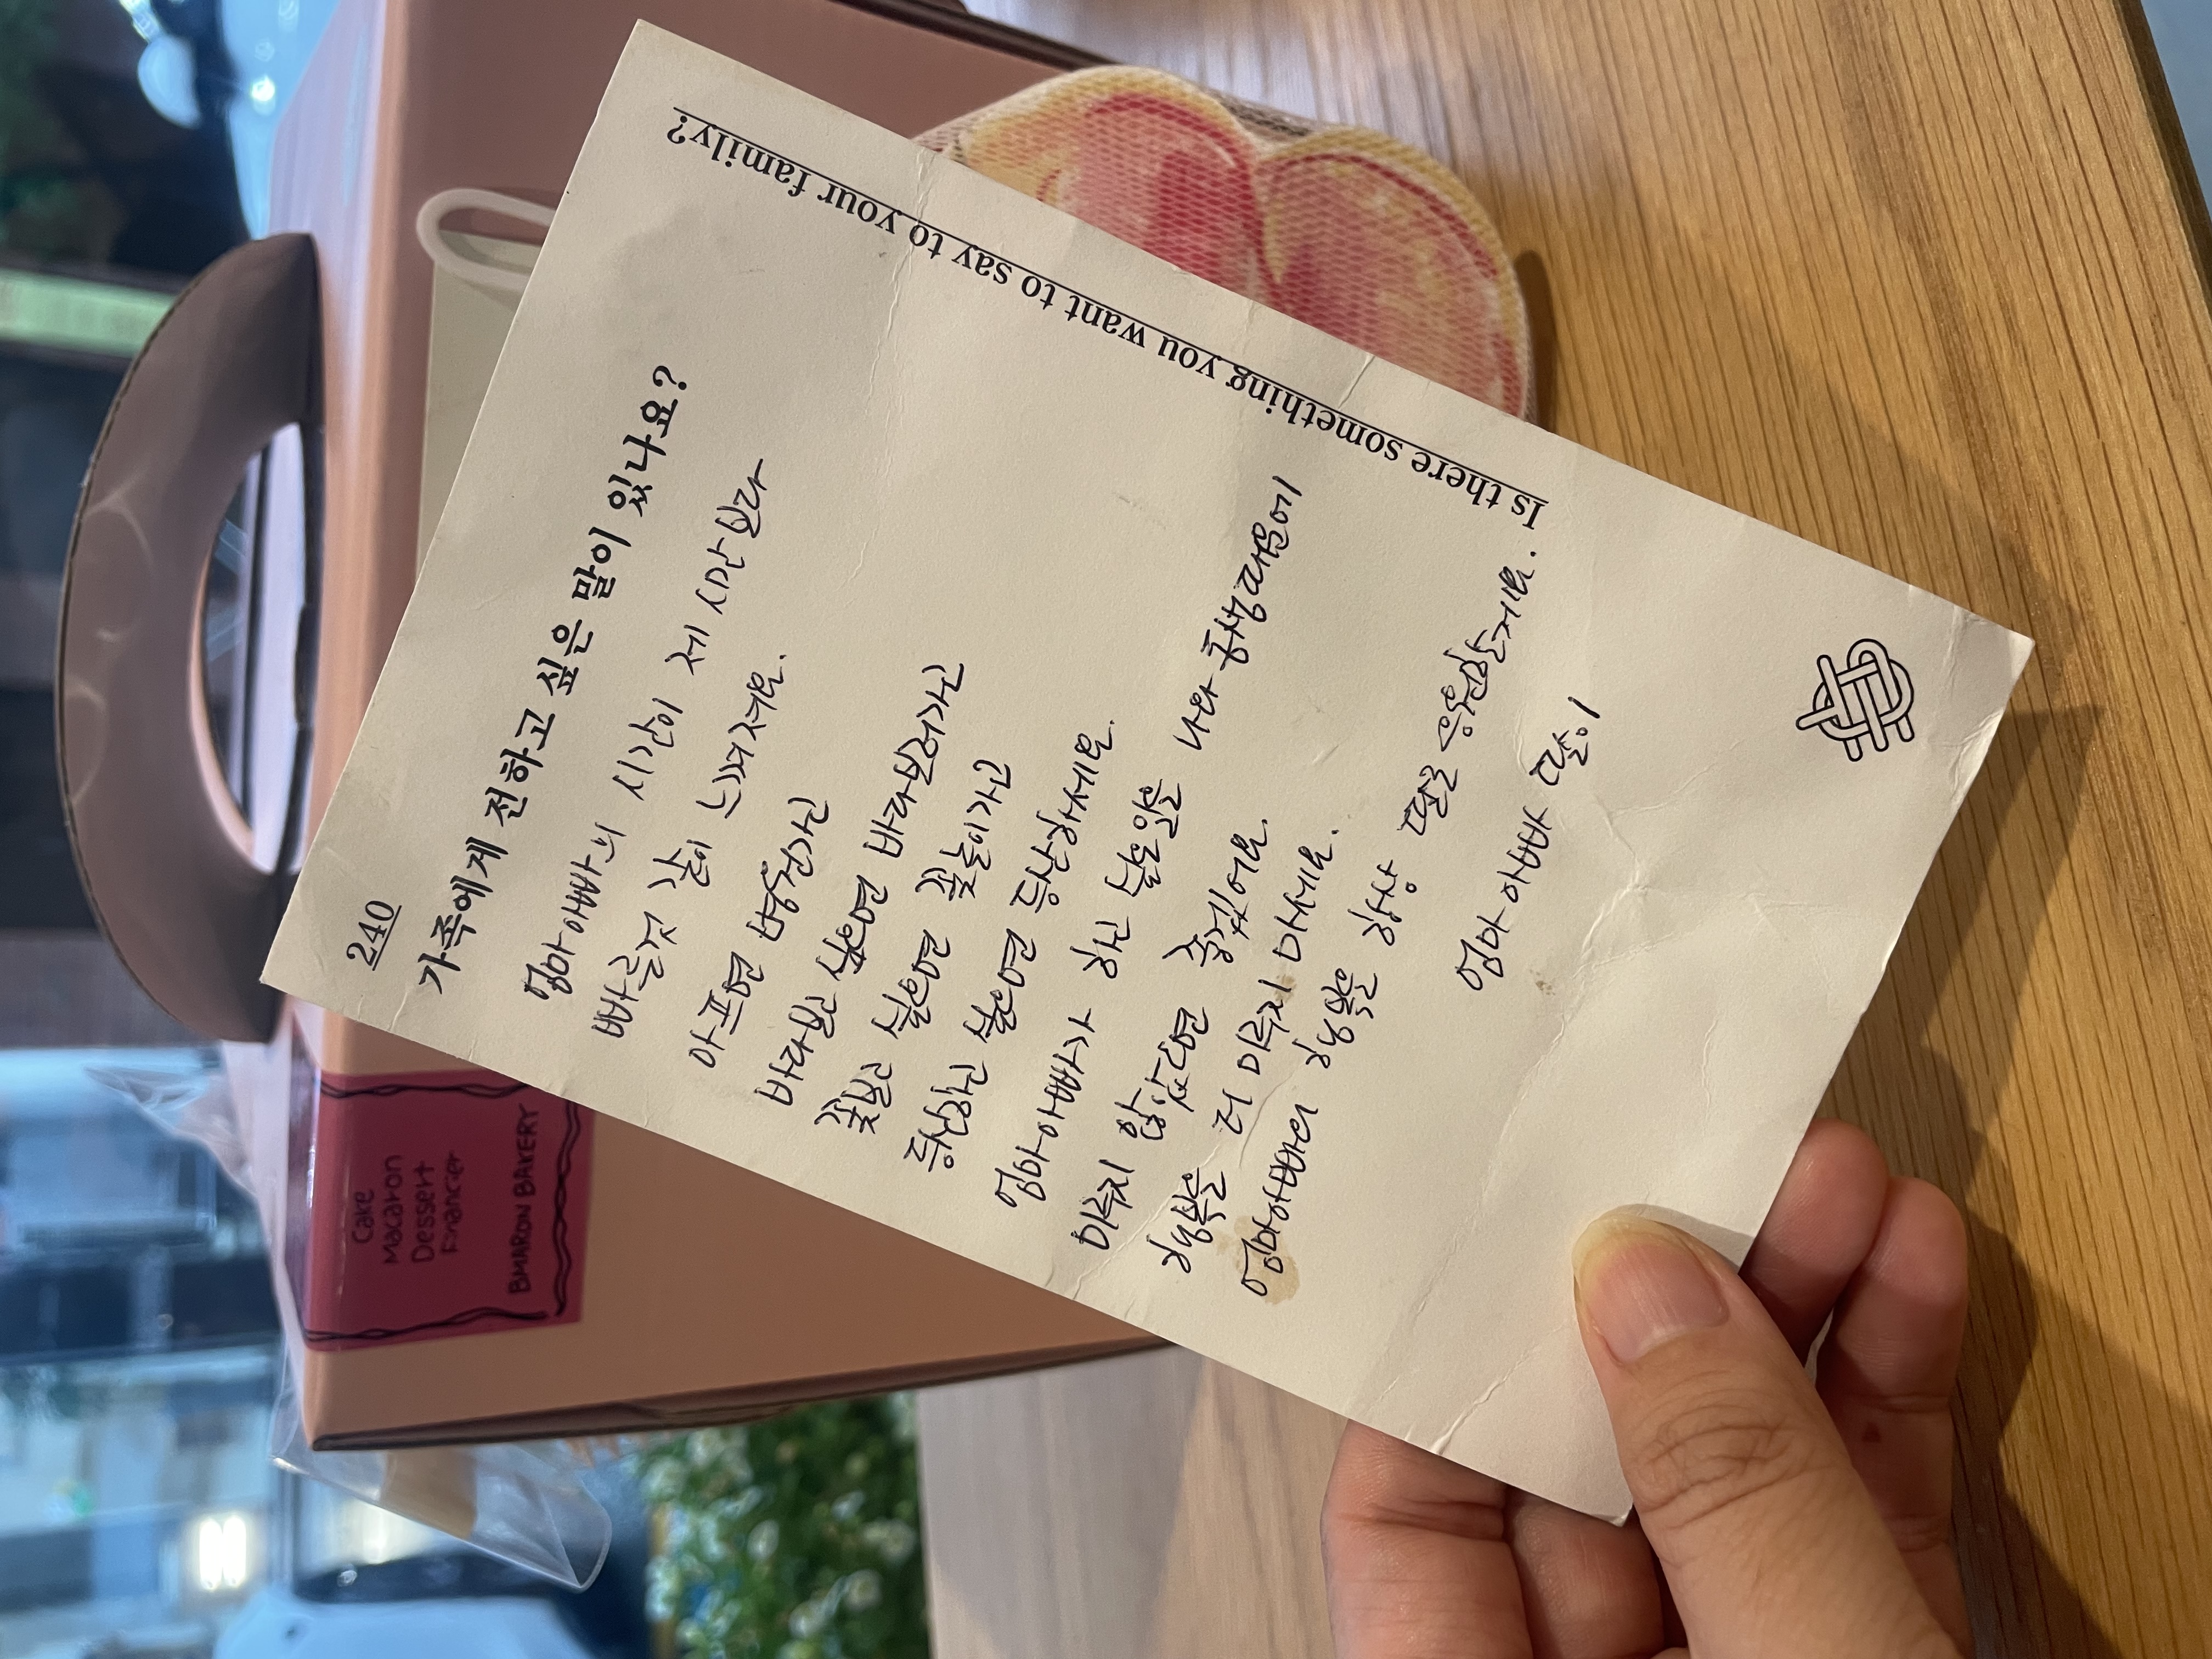 240
가족에게 전하고 싶은 말이 있나요?
엄마아빠의 시간이 제 시간보다
빠른것 같이 느껴져요.
아프면 병원가신
바다보고 싶으면 바다보러가고
꽃보고 싶으면 꽃놀이가고
등산하고 싶으면 등산하세요.
엄마아빠가 하고 싶은일을 나와 동생때문에
미루지 않았으면 좋겠어요.
행복을 더 미루지 마세요.
엄마아빠의 행복을 항상 딸은 응원할게요.
엄마 아빠 딸이
Is there something you want to say to your family?
Cake
Macaron
Dessert
Financier
BMARON BAKERY